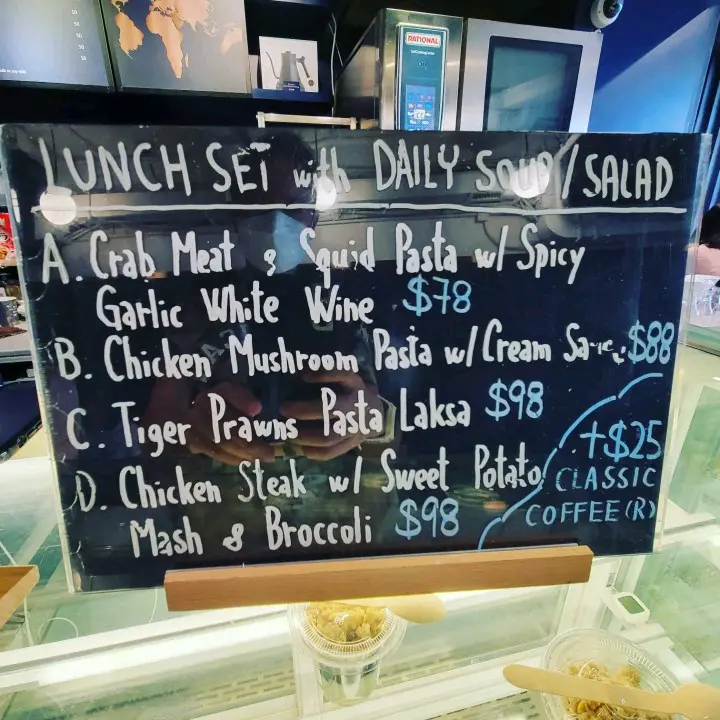 RATIONAL
LUNCH SET with DAILY SOUP / SALAD
A. Crab Meat & Squid Pasta w/ Spicy
Garlic White Wine $78
B. Chicken Mushroom Pasta w/ Cream Sauce $88
C. Tiger Prawns Pasta Laksa $98
D. Chicken Steak w/ Sweet Potato
Mash & Broccoli $98
+$25
CLASSIC
COFFEE (R)